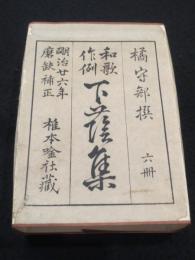 橘守部撰
六冊
和歌
作例
下蔭集
明治廿六年
磨缺補正
椎本唫社藏